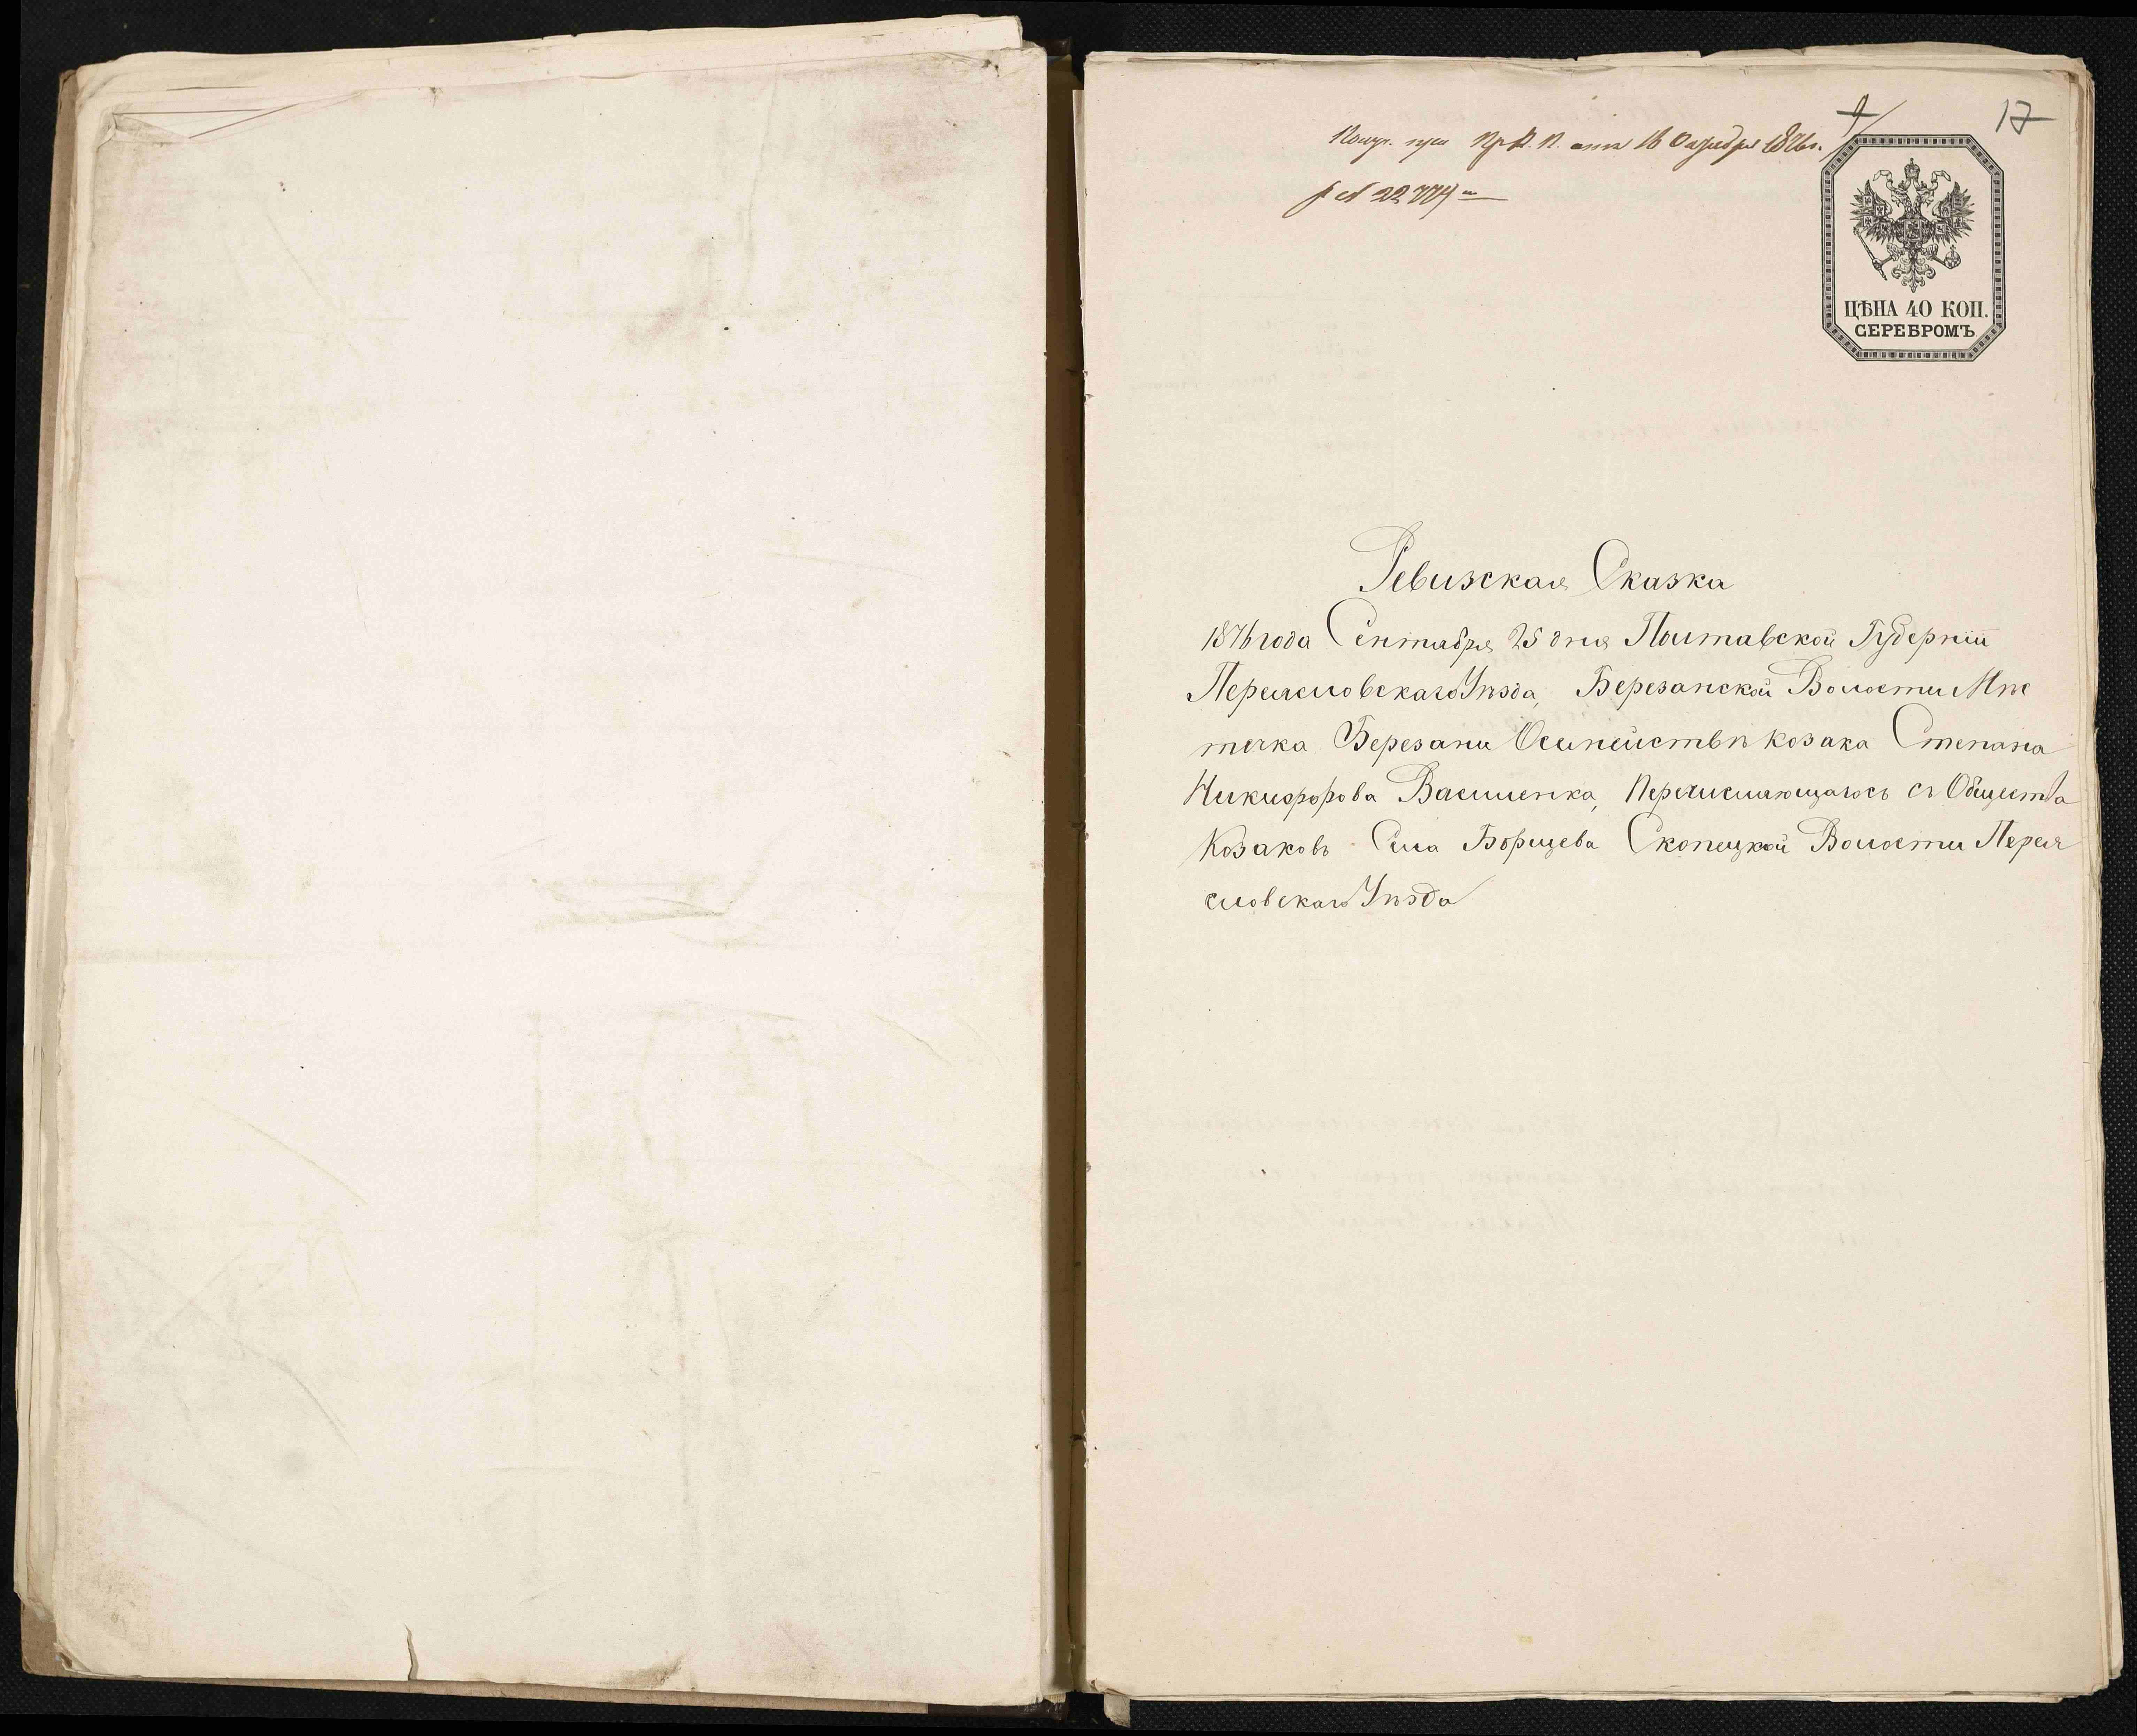 17
Получ. при от 16 Октября 1876 г.
за № 22774
ЦѢНА 40 КОП.
СЕРЕБРОМЪ
Ревизская Сказка
1876 года Сентября 25 дня Полтавской Губерніи
Переясловскаго Уѣзда, Березанской Волости Мѣс
течка Березани О семействѣ козака Степана
Никифорова Василенка, Перечисляющагось съ Общества
Козаковъ Села Борщева Скопецкой Волости Перея
словскаго Уѣзда